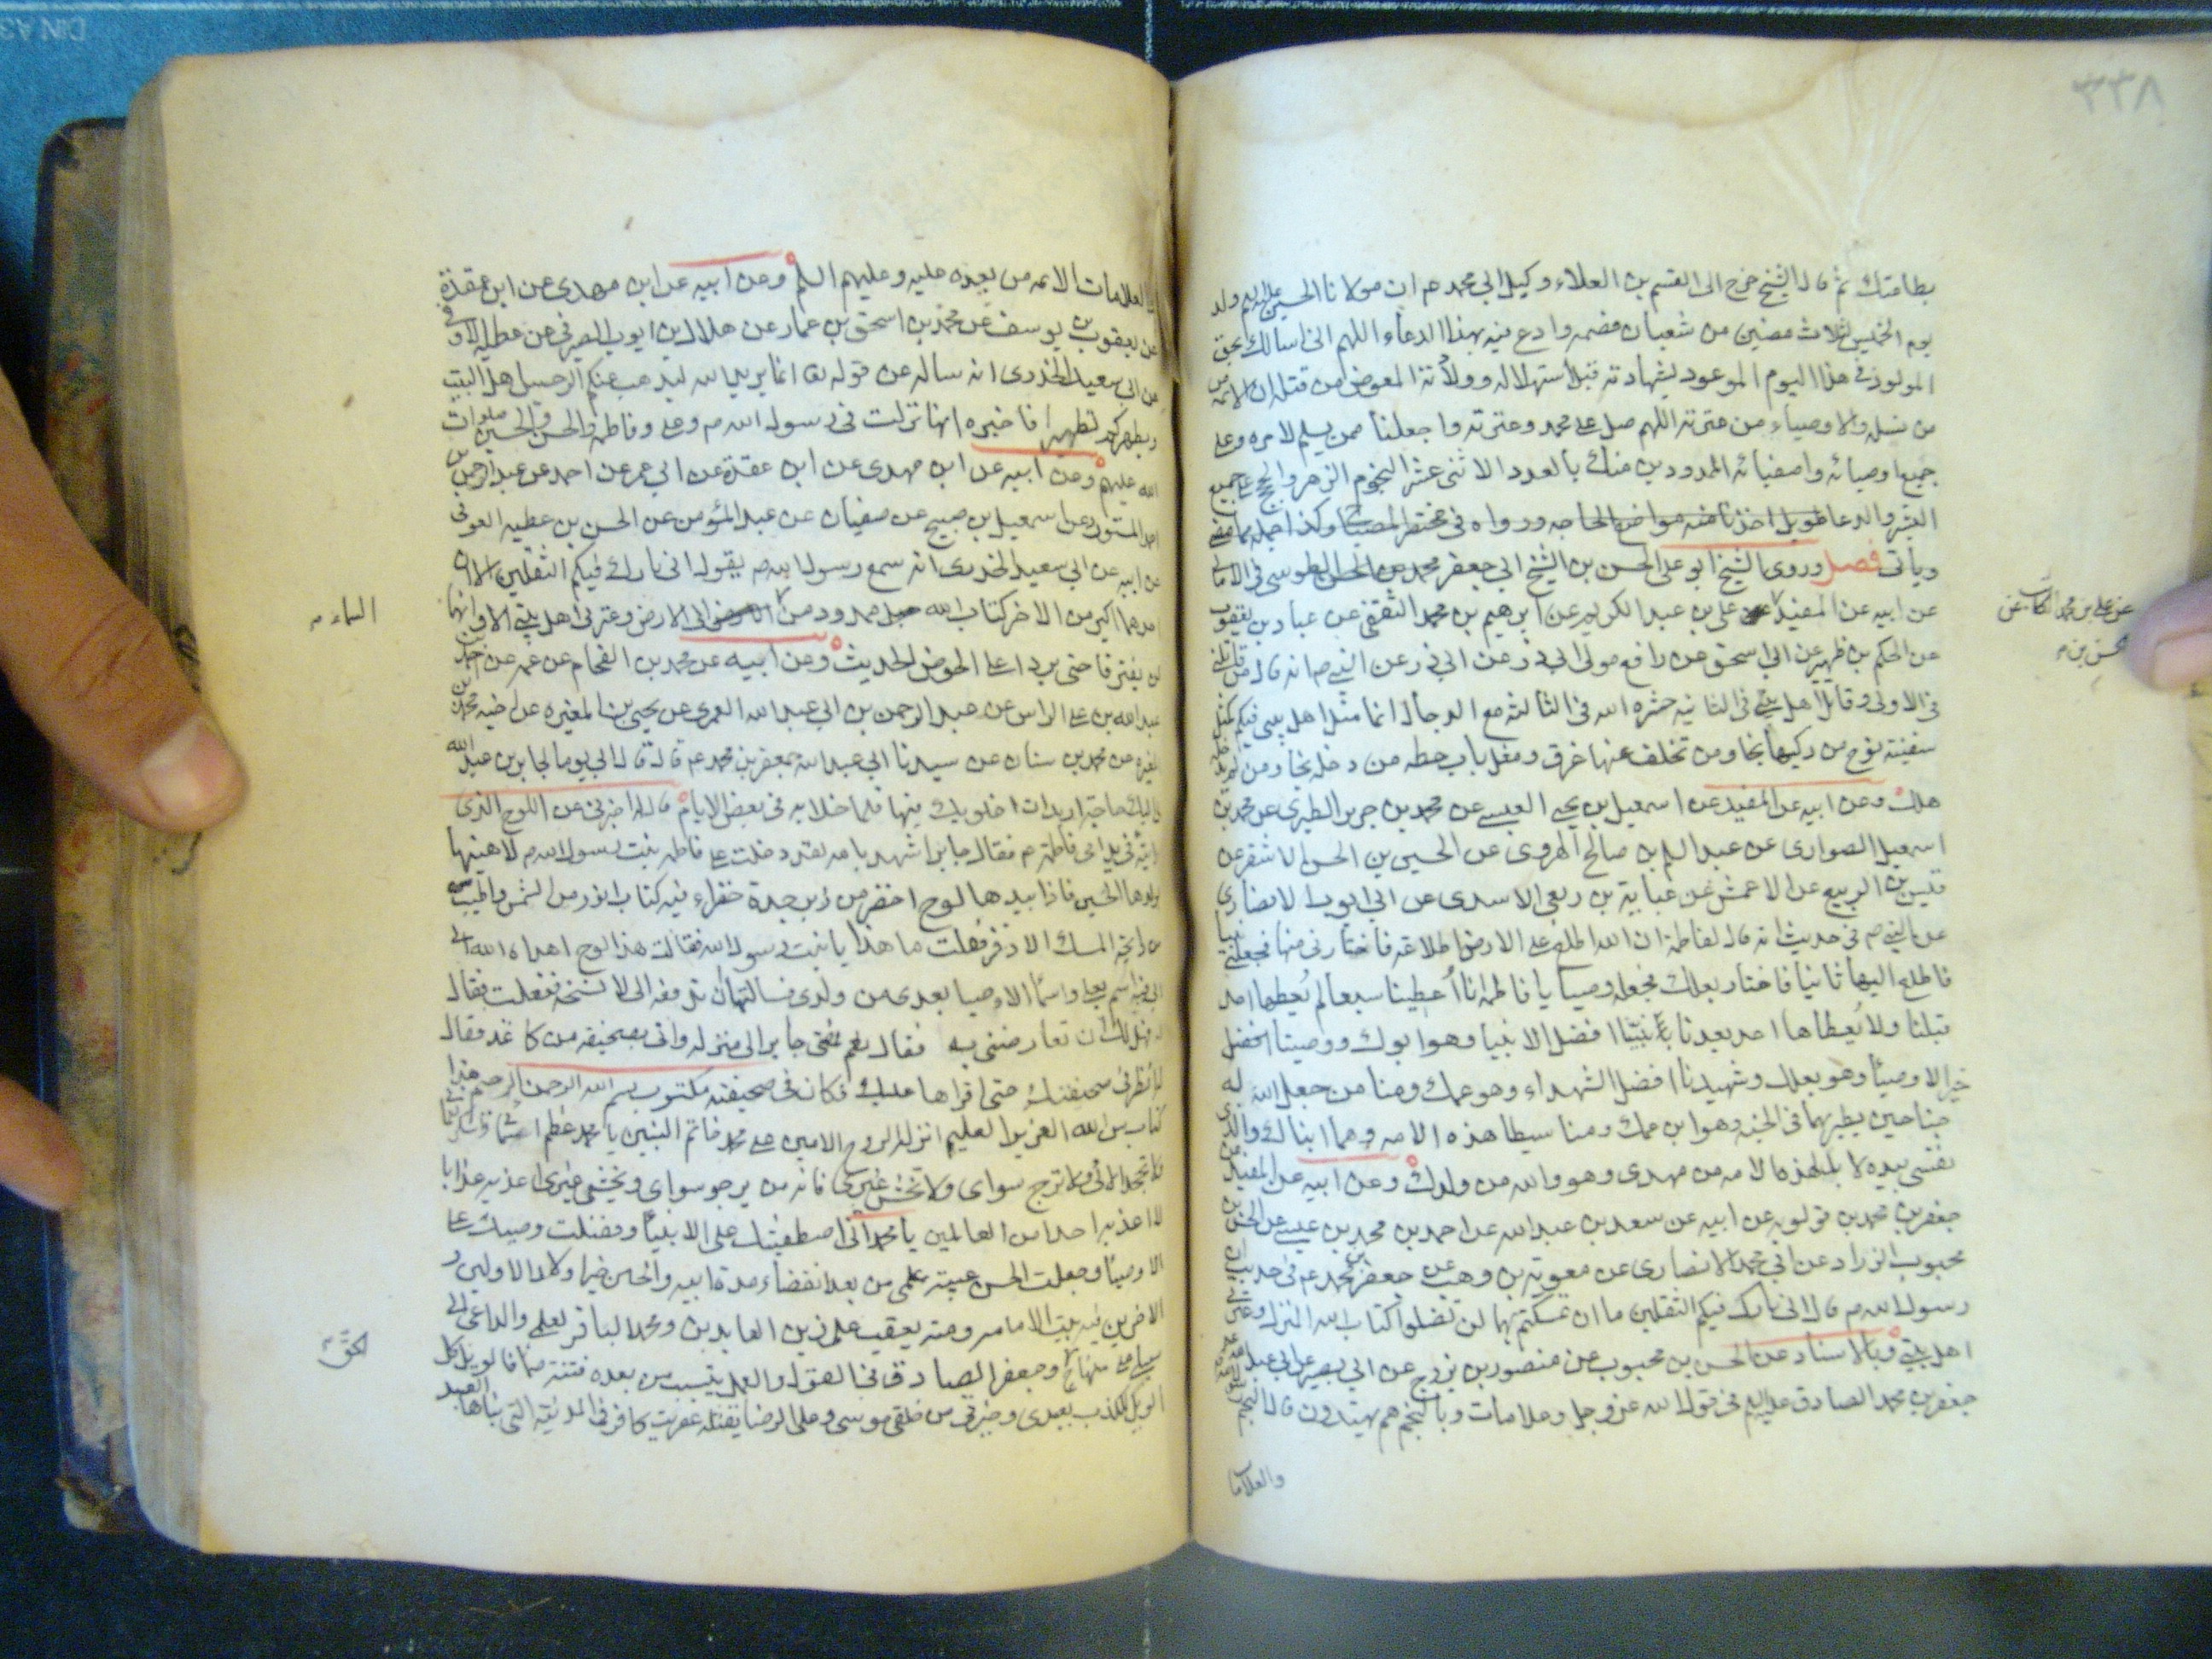 ٣٣٨
بطاقتك ثم قال الشيخ خرج الى القسم بن العلاء وكيل ابي محمد ع ان مولانا الحسين عليه السلم ولد
يوم الخميس لثلاث مضين من شعبان فصمه وادع فيه بهذا الدعاء اللهم انى اسالك بحق
المولود فى هذا اليوم الموعود بشهادته قبل استهلاله وولادته المعوض من قتله ان الائمه من
من نسله والاوصياء من عترته اللهم صل على محمد وعترته واجعلنا ممن يسلم لامره وعلى
جميع اوصيائه واصفيائه الممدودين منك بالعدد الاثنى عشر النجوم الزهر والحجج على جميع
البشر والدعا طويل اخذنا منه مواضع الحاجه ورواه فى مختصر المصباح وكذا جمله مما مضى
وياتى فصل وروى الشيخ ابو على الحسن بن الشيخ ابى جعفر محمد بن الحسن الطوسى فى الامالى
عن ابيه عن المفيد عن على بن عبد الكريم عن ابرهيم بن محمد الثقفى عن عباد بن يعقوب
عن على بن محمد الكاتب عن
عن الحكم بن ظهير عن ابى اسحق عن رافع مولى ابى ذر عن ابى ذر عن النبى ص انه قال من قاتلنى
الحسن بن م
فى الاولى وقاتل اهل بيتى فى الثانيه حشره الله فى الثالثه مع الدجال انما مثل اهل بيتى فيكم كمثل
سفينة نوح من ركبها نجا ومن تخلف عنها غرق ومثل باب حطه من دخله نجا ومن لم يدخله
هلك وعن ابيه عن المفيد عن اسمعيل بن يحيى العبسى عن محمد بن جرير الطبرى عن محمد بن
اسمعيل الصوارى عن عبد السلم بن صالح الهروى عن الحسين بن الحسن الاشقر عن
قيس بن الربيع عن الاعمش عن عباية بن ربعى الاسدى عن ابى ايوب الانصارى
عن النبى ص فى حديث انه قال لفاطمة ان الله اطلع على الارض اطلاعه فاختارنى منها فجعلنى نبيا
فاطلع اليها ثانيا فاختار بعلك فجعله وصيا يا فاطمه انا اعطينا سبعا لم يعطها احد
قبلنا ولا يعطاها احد بعدنا نبينا افضل الانبيا وهو ابوك ووصينا افضل
خير الاوصيا وهو بعلك وشهيدنا افضل الشهداء وهو عمك ومنا من جعل الله له
جناحين يطير بهما فى الجنه وهو ابن عمك ومنا سبطا هذه الامه وهما ابناك والذى
نفسى بيده لا بد لهذه الامه من مهدى وهو والله من ولدك وعن ابيه عن المفيد عن
جعفر بن محمد بن قولويه عن ابيه عن سعد بن عبد الله عن احمد بن محمد بن عيسى عن الحسن بن
محبوب الزراد عن ابى محمد الانصارى عن معويه بن وهب عن جعفر بن محمد ع فى حديث ان
رسول الله ص قال انى تارك فيكم الثقلين ما ان تمسكتم بهما لن تضلوا كتاب الله المنزل وعترتى
اهل بيتى وبالاسناد عن الحسن بن محبوب عن منصور بن بزرج عن ابى بصير عن ابى عبد الله
جعفر بن محمد الصادق عليه السلم فى قول الله عز وجل وعلامات وبالنجم هم يهتدون قال النجم
والعلامات
والعلامات الائمه من بعده عليه وعليهم السلم وعن ابيه عن ابن مهدى عن ابن عقدة
عن يعقوب بن يوسف عن محمد بن اسحق بن عمار عن هلال بن ايوب الصيرفى عن عطيه العوفى
عن ابى سعيد الخدرى انه ساله عن قوله تعا انما يريد الله ليذهب عنكم الرجس اهل البيت
ويطهركم تطهيرا فاخبره انها نزلت فى رسول الله ص وعلى وفاطمه والحسن والحسين صلوات
الله عليهم وعن ابيه عن ابن مهدى عن ابن عقدة عن ابى عمر عن احمد عن عبد الرحمن بن
عن اسمعيل بن صبيح عن سفيان عن عبد المؤمن عن الحسن بن عطيه العوفى
عن ابيه عن ابى سعيد الخدرى انه سمع رسول الله ص يقول انى تارك فيكم الثقلين الا ان
احدهما اكبر من الاخر كتاب الله حبل ممدود من الى الارض وعترتى اهل بيتى الا وانهما
السماء م
لن يفترقا حتى يردا على الحوض الحديث وعن ابيه عن محمد بن الفحام عن عمه عن احمد بن
عبد الله بن على الراس عن عبد الرحمن بن ابى عبد الله العمرى عن يحيى بن المغيره عن اخيه محمد بن
المغيره عن محمد بن سنان عن سيدنا ابى عبد الله جعفر بن محمد ع قال قال ابى يوما لجابر بن عبد الله
لى اليك حاجة اريد ان اخلو بك فيها فلما خلا به فى بعض الايام قال له اخبرنى عن اللوح الذى
رايته فى يد امى فاطمة ع فقال جابر اشهد بالله لقد دخلت على فاطمه بنت رسول الله ص لاهنيها
بولدها الحسين فاذا بيدها لوح اخضر من زبرجدة خضراء فيه كتاب انور من الشمس واطيب
من رايحة المسك الاذفر فقلت ما هذا يا بنت رسول الله فقالت هذا لوح اهداه الله الى
ابى فيه اسم بعلى واسما الاوصيا بعدى من ولدى فسالتها ان تدفعه الى لانسخه ففعلت فقال
له فهل لك ان تعارضنى به فقال نعم فمضى جابر الى منزله واتى بصحيفة من كاغد فقال
له انظر فى صحيفتك حتى اقراها عليك فكان فى صحيفته مكتوب بسم الله الرحمن الرحيم هذا
كتاب من الله العزيز العليم انزله الروح الامين على محمد خاتم النبيين يا محمد عظم اسمائى واشكر نعمائى
ولا تجحد الائى ولا ترج سواى ولا تخش غيرى فانه من يرجو سواى ويخشى غيرى اعذبه عذابا
لا اعذبه احدا من العالمين يا محمد انى اصطفيتك على الانبيا وفضلت وصيك على
الاوصيا وجعلت الحسن عيبة علمى من بعد انقضاء مدة ابيه والحسين خير اولاد الاولين و
الاخرين فيه تثبت الامامه ومنه يعقب على زين العابدين ومحمد الباقر لعلمى والداعى الى
سبيلى على منهاج وجعفر الصادق فى القول والعمل تنشب من بعده فتنة صما فالويل كل
الحق م
الويل للمكذب بعبدى وخيرتى من خلقى موسى وعلى الرضا يقتله عفريت كافر فى المدينه التى بناها العبد